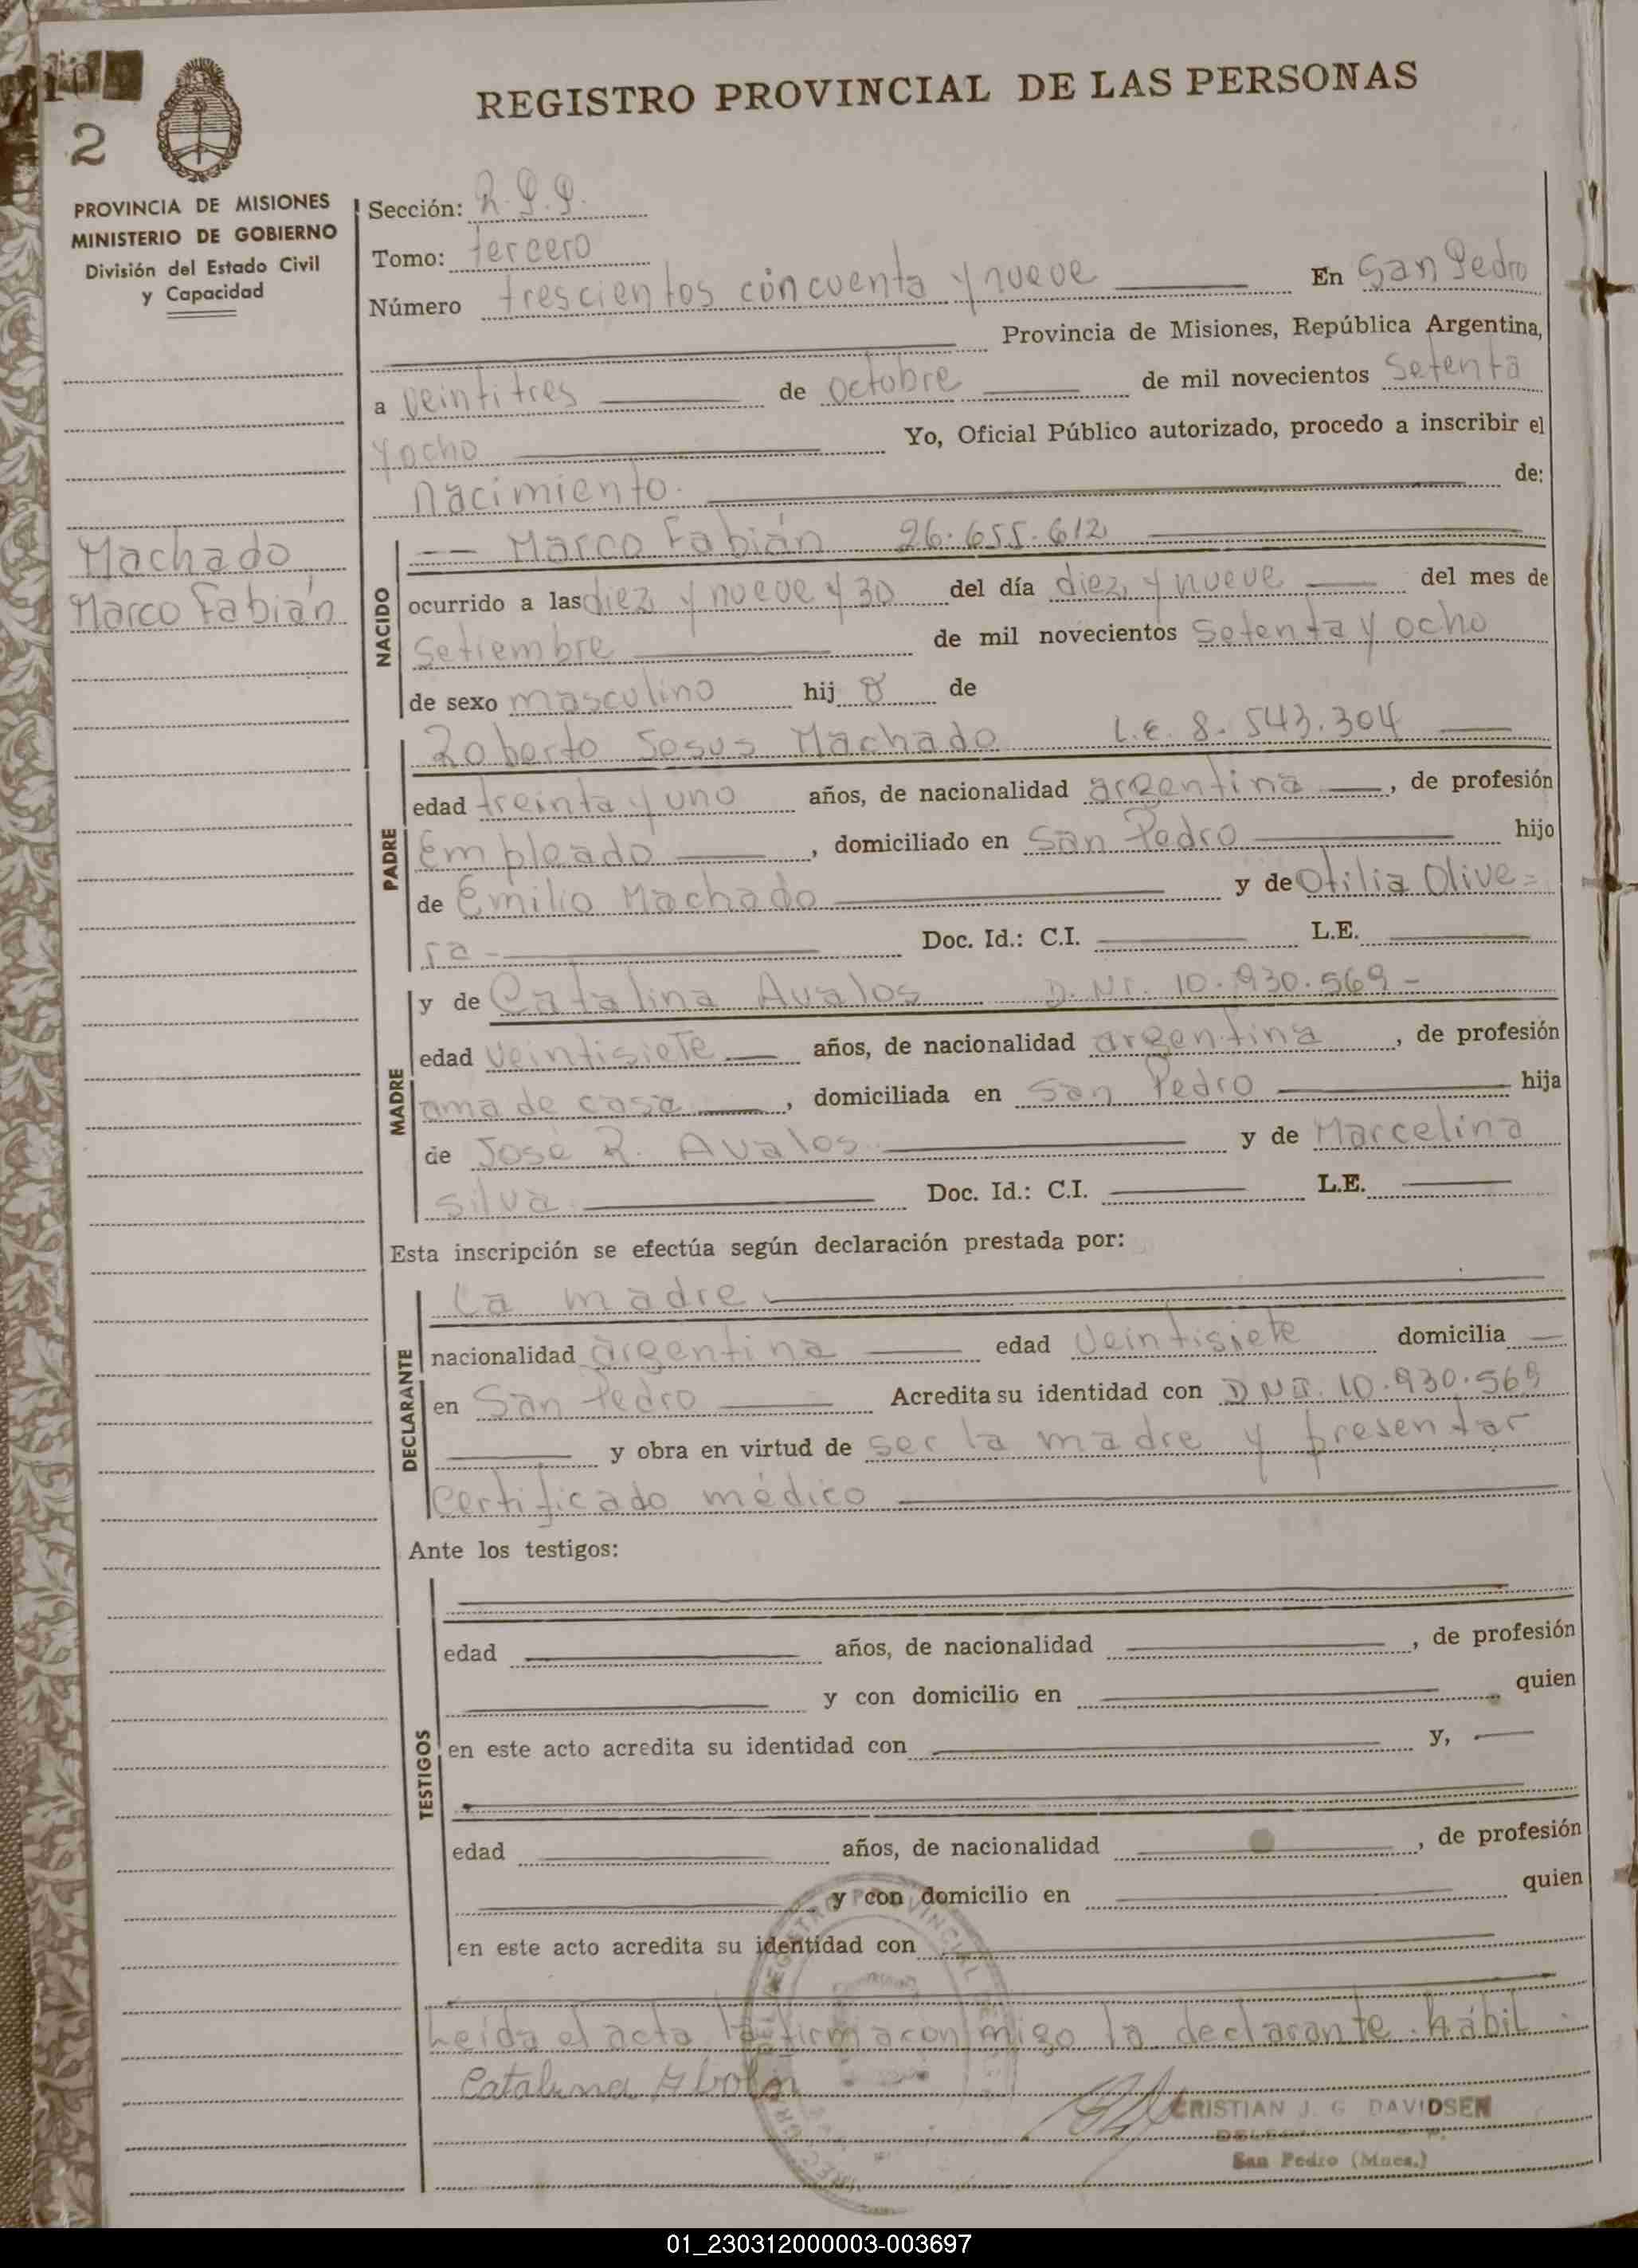 2
REGISTRO PROVINCIAL DE LAS PERSONAS
PROVINCIA DE MISIONES
MINISTERIO DE GOBIERNO
División del Estado Civil
y Capacidad
Machado
Marco Fabián
Sección: R.P.P.
Tomo: tercero
Número trescientos cincuenta y nueve En San Pedro
Provincia de Misiones, República Argentina,
a veintitres de octubre de mil novecientos setenta
y ocho Yo, Oficial Público autorizado, procedo a inscribir el
nacimiento. de:
NACIDO
-- Marco Fabián 26.655.612
ocurrido a las diez y nueve y 30 del día diez y nueve del mes de
setiembre de mil novecientos setenta y ocho
de sexo masculino hij o de
PADRE
Roberto Jesus Machado L.E. 8.543.304
edad treinta y uno años, de nacionalidad argentina , de profesión
empleado , domiciliado en San Pedro hijo
de Emilio Machado y de Otilia Olive=
ra - Doc. Id.: C.I. L.E.
MADRE
y de Catalina Avalos D.NI. 10.930.569 -
edad veintisiete años, de nacionalidad argentina , de profesión
ama de casa , domiciliada en San Pedro hija
de José R. Avalos y de Marcelina
Silva Doc. Id.: C.I. L.E.
Esta inscripción se efectúa según declaración prestada por:
DECLARANTE
La madre
nacionalidad argentina edad veintisiete domicilia
en San Pedro Acredita su identidad con DNI. 10.930.569
y obra en virtud de ser la madre y presentar
certificado médico
Ante los testigos:
TESTIGOS
edad años, de nacionalidad , de profesión
y con domicilio en quien
en este acto acredita su identidad con y,
edad años, de nacionalidad , de profesión
y con domicilio en quien
en este acto acredita su identidad con
Leída el acta la firma conmigo la declarante hábil.
Catalina
CRISTIAN J. G. DAVIDSEN
San Pedro (Mnes.)
01_230312000003-003697